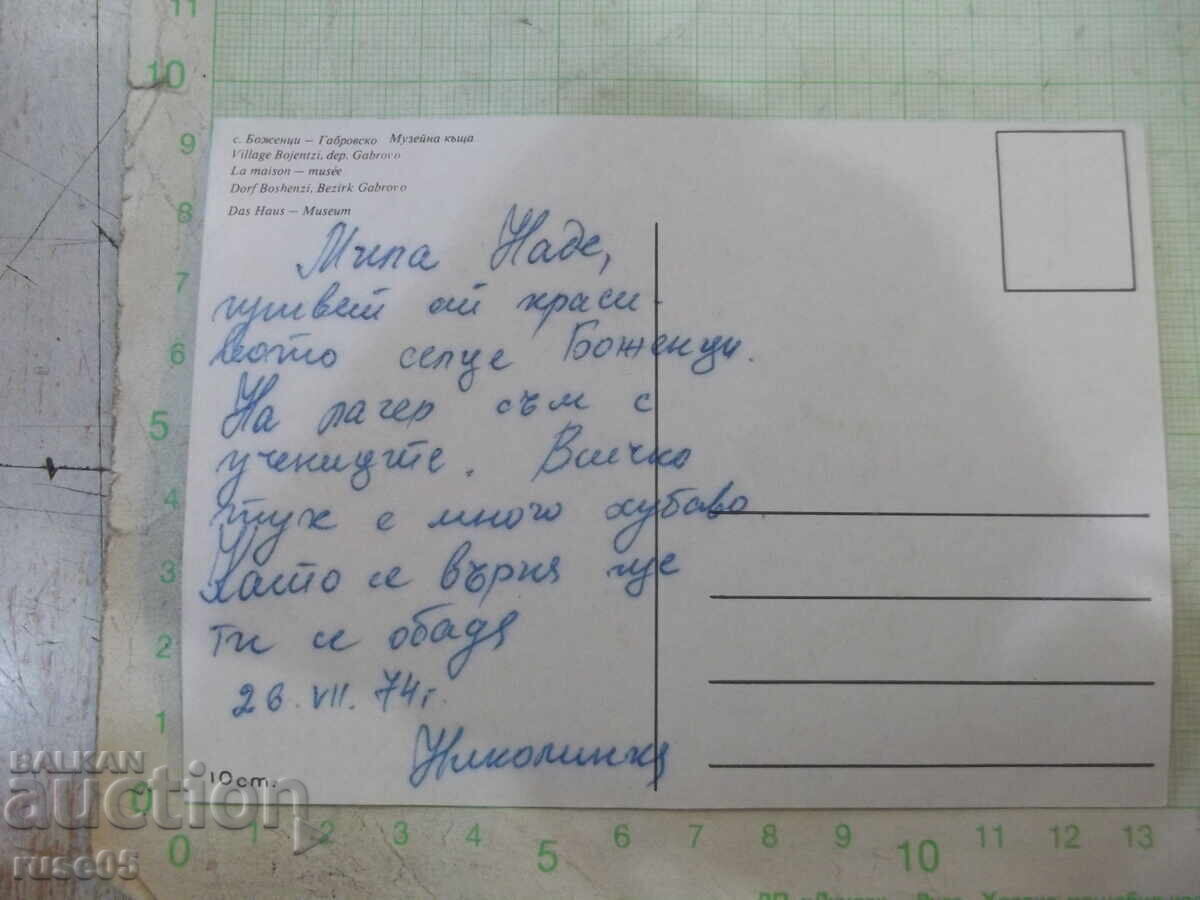 с. Боженци – Габровско Музейна къща
Village Bojentzi, dep. Gabrovo
La maison – musée
Dorf Boshenzi, Bezirk Gabrovo
Das Haus – Museum
Мила Наде,
привет от краси-
вото селце Боженци.
На лагер съм с
учениците. Всичко
тук е много хубаво
Като се върна ще
ти се обадя
26. VII. 74 г.
Николинка
10 ст.
BALKAN
auction
ruse05
11
10
9
8
7
6
5
4
3
2
1
0
0 1 2 3 4 5 6 7 8 9 10 11 12 13